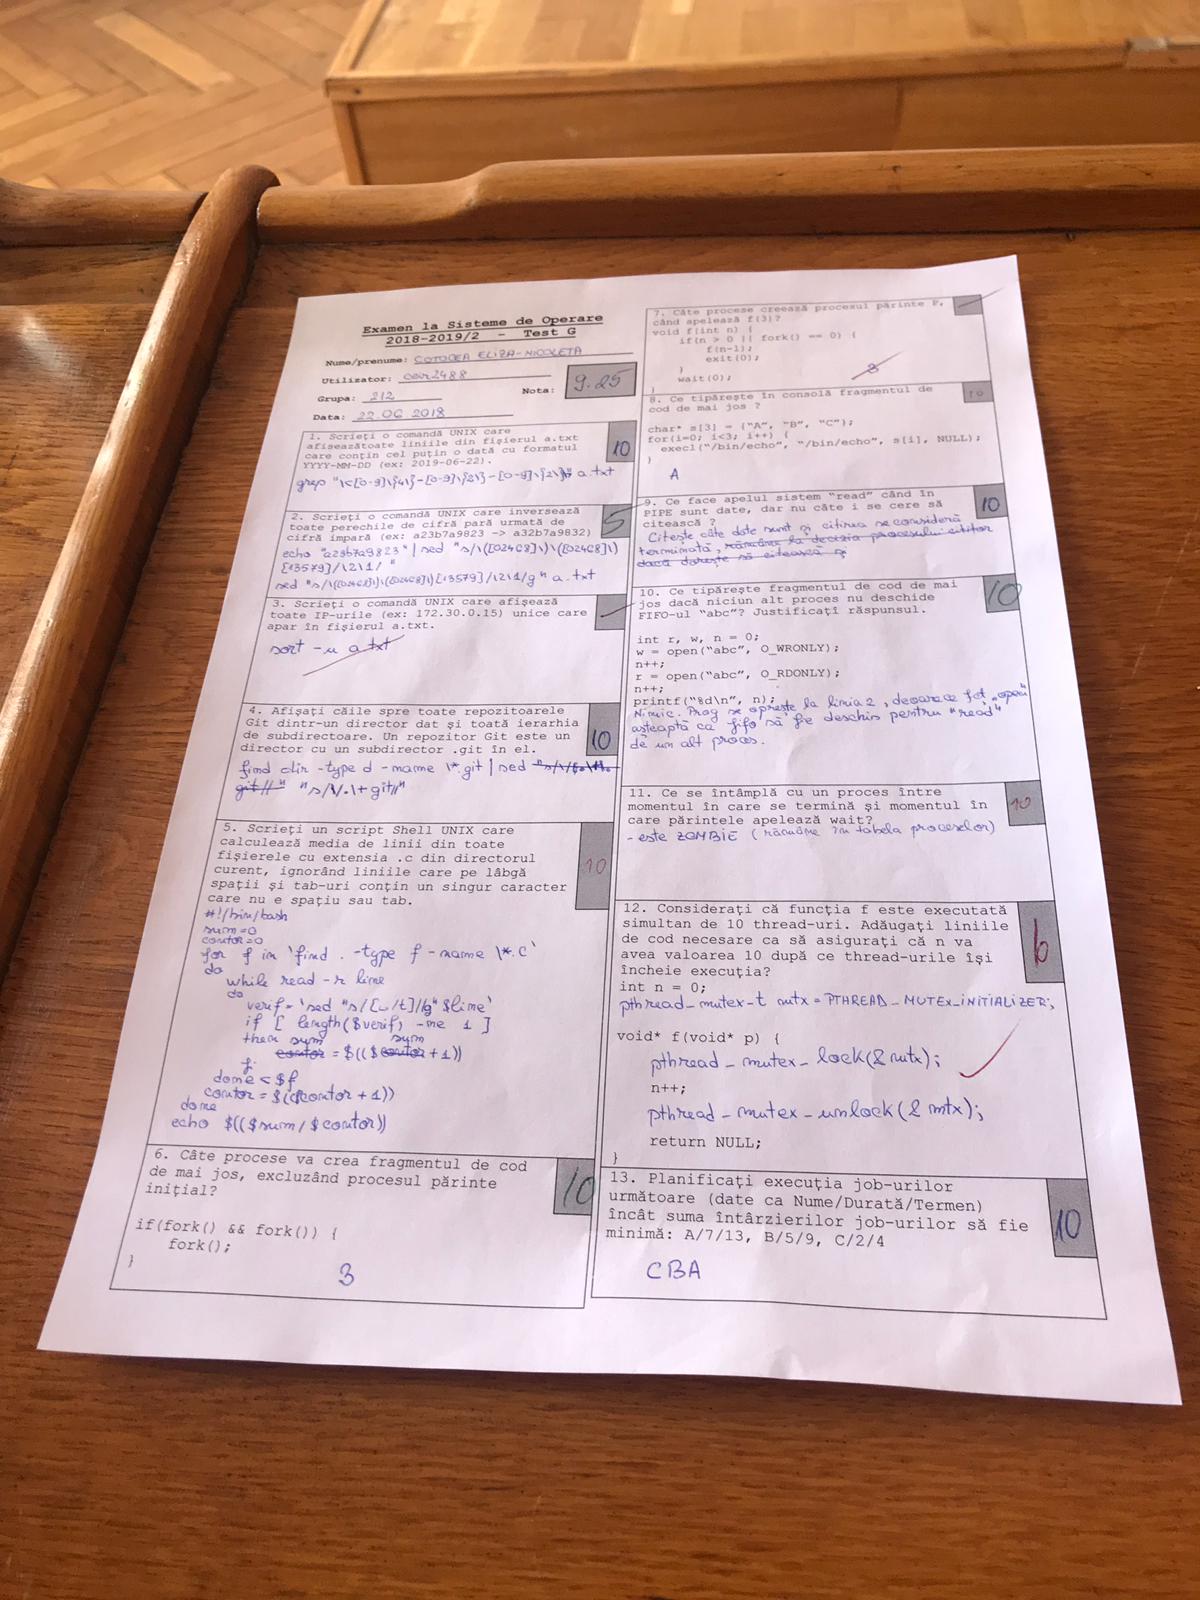 Examen la Sisteme de Operare
2018-2019/2 - Test G
Nume/prenume: COTOCEA ELIZA-NICOLETA
Utilizator: ceir2488
Grupa: 212
Nota: 9.25
Data: 22.06 2018
1. Scrieți o comandă UNIX care
afiseazătoate liniile din fișierul a.txt
care conțin cel puțin o dată cu formatul
YYYY-MM-DD (ex: 2019-06-22).
10
grep "\<[0-9]\{4\}-[0-9]\{2\}-[0-9]\{2\}\>" a.txt
2. Scrieți o comandă UNIX care inversează
toate perechile de cifră pară urmată de
cifră impară (ex: a23b7a9823 -> a32b7a9832)
5
echo "a23b7a9823" | sed "s/\([02468]\)\([02468]\)
[13579]/\2\1/"
sed "s/\([02468]\)\([02468]\)[13579]/\2\1/g" a.txt
3. Scrieți o comandă UNIX care afișează
toate IP-urile (ex: 172.30.0.15) unice care
apar în fișierul a.txt.
sort -u a.txt
4. Afișați căile spre toate repozitoarele
Git dintr-un director dat și toată ierarhia
de subdirectoare. Un repozitor Git este un
director cu un subdirector .git în el.
10
find dir -type d -name \*.git | sed
git//" "s/\/.\+git//"
5. Scrieți un script Shell UNIX care
calculează media de linii din toate
fișierele cu extensia .c din directorul
curent, ignorând liniile care pe lâbgă
spații și tab-uri conțin un singur caracter
care nu e spațiu sau tab.
10
#!/bin/bash
sum=0
contor=0
for f in `find . -type f -name \*.c`
do
while read -r line
do
verif=`sed "s/[ /t]//g" $line`
if [ length($verif) -ne 1 ]
then sum sum
contor = $(($contor+1))
fi
done < $f
contor = $(($contor+1))
done
echo $(($sum/$contor))
6. Câte procese va crea fragmentul de cod
de mai jos, excluzând procesul părinte
inițial?
10
if(fork() && fork()) {
fork();
}
3
7. Câte procese creează procesul părinte P,
când apelează f(3)?
void f(int n) {
if(n > 0 || fork() == 0) {
f(n-1);
exit(0);
}
wait(0);
}
3
8. Ce tipărește în consolă fragmentul de
cod de mai jos ?
10
char* s[3] = {"A", "B", "C"};
for(i=0; i<3; i++) {
execl("/bin/echo", "/bin/echo", s[i], NULL);
}
A
9. Ce face apelul sistem "read" când în
PIPE sunt date, dar nu câte i se cere să
citească ?
10
Citește câte date sunt și citirea se consideră
terminată, rămâne la decizia procesului cititor
dacă dorește să citească și
10. Ce tipărește fragmentul de cod de mai
jos dacă niciun alt proces nu deschide
FIFO-ul "abc"? Justificați răspunsul.
10
int r, w, n = 0;
w = open("abc", O_WRONLY);
n++;
r = open("abc", O_RDONLY);
n++;
printf("%d\n", n);
Nimic. Prog se oprește la linia 2, deoarece fct "open"
așteaptă ca fifo să fie deschis pentru "read"
de un alt proces.
11. Ce se întâmplă cu un proces între
momentul în care se termină și momentul în
care părintele apelează wait?
10
- este ZOMBIE (rămâne în tabela proceselor)
12. Considerați că funcția f este executată
simultan de 10 thread-uri. Adăugați liniile
de cod necesare ca să asigurați că n va
avea valoarea 10 după ce thread-urile își
încheie execuția?
int n = 0;
pthread_mutex_t mtx = PTHREAD_MUTEX_INITIALIZER;
void* f(void* p) {
pthread_mutex_lock(& mtx);
n++;
pthread_mutex_unlock(& mtx);
return NULL;
}
13. Planificați execuția job-urilor
următoare (date ca Nume/Durată/Termen)
încât suma întârzierilor job-urilor să fie
minimă: A/7/13, B/5/9, C/2/4
10
CBA